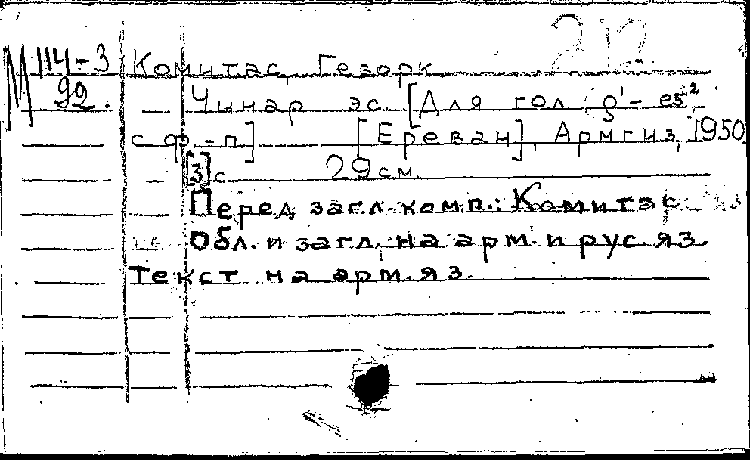 212
М 114-3 Комитас, Гезорк
92. Чинар эс. [Для гол. g¹- es²
с ф.-п] [Ереван], Армгиз, 1950
[3] с 29 см.
Перед загл. комп.: Комитас
Обл. и загл. на арм. и рус яз
Текст на арм. яз.